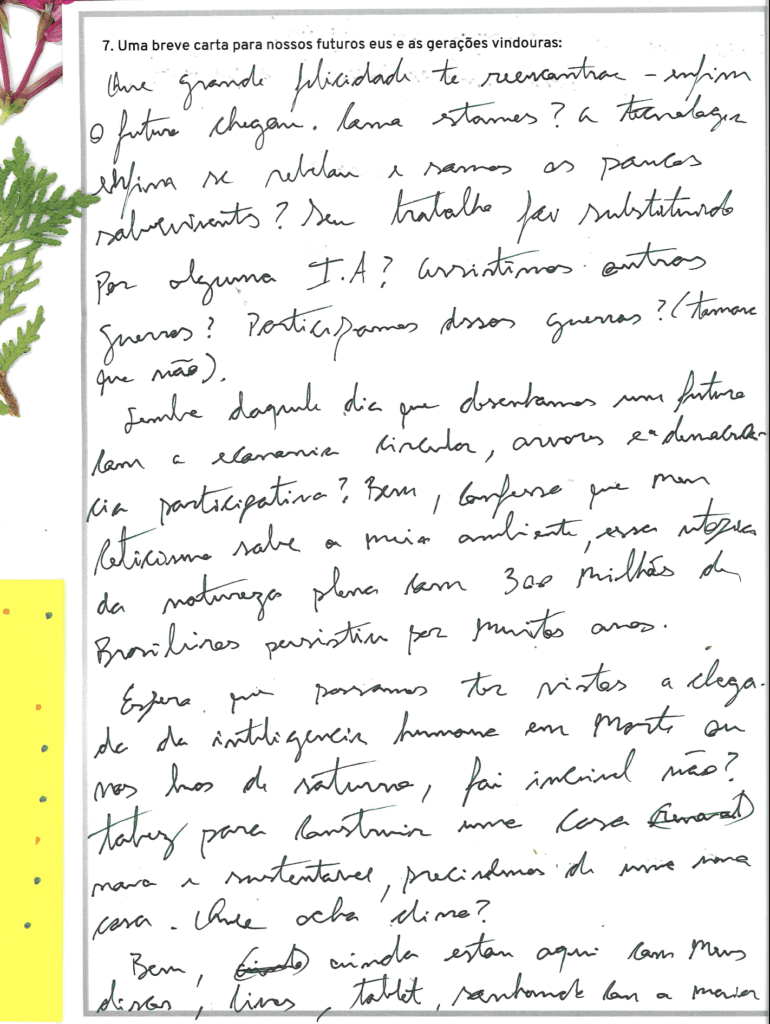 7. Uma breve carta para nossos futuros eus e as gerações vindouras:
Que grande felicidade te reencontrar – enfim
o futuro chegou. Como estamos? a tecnologia
enfim se rebelou e somos os poucos
sobreviventes? Seu trabalho foi substituido
Por alguma I.A? assistimos outras
guerras? Participamos dessas guerras? (tomara
que não).
Lembra daquele dia que desenhamos um futuro
com a economia circular, arvores e a democra-
cia participativa? Bem, confesso que meu
ceticismo sobre o meio ambiente, essa utopia
da natureza plena com 300 milhões de
Brasileiros persistiu por muitos anos.
Espero que possamos ter vistos a chega-
da da inteligencia humana em Marte ou
nas luas de saturno, foi incrivel não?
talvez para construir uma casa
nova e sustentavel, precisamos de uma nova
casa. Que acha disso?
Bem, ainda estou aqui com meus
discos, livros, tablet, sonhando com a maior